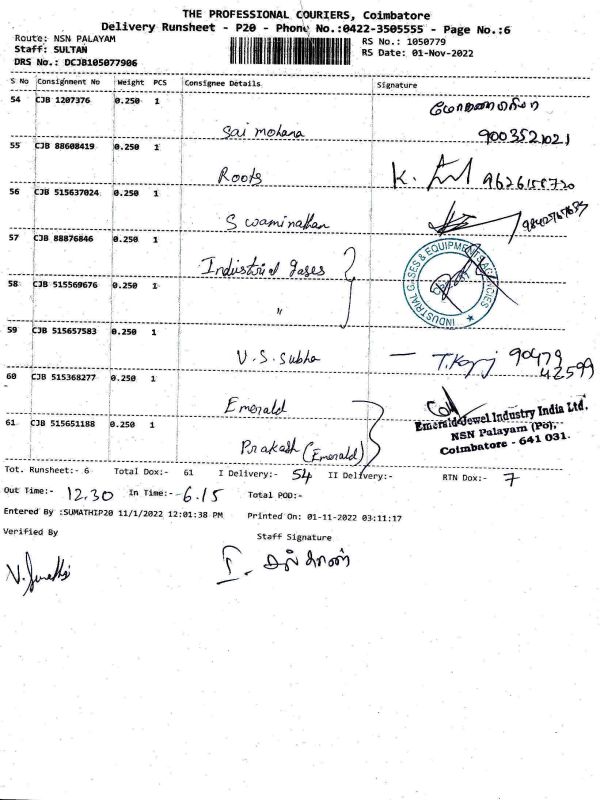 THE PROFESSIONAL COURIERS, Coimbatore
Delivery Runsheet - P20 - Phone No.:0422-3505555 - Page No.:6
Route: NSN PALAYAM
RS No.: 1050779
Staff: SULTAN
RS Date: 01-Nov-2022
DRS No.: DCJB105077906
S No Consignment No Weight PCS Consignee Details Signature
54 CJB 1207376 0.250 1
Sai mohana
9003521021
55 CJB 88608419 0.250 1
Roots K.
56 CJB 515637024 0.250 1
Swaminathan
57 CJB 88876846 0.250 1
Industrial gases
INDUSTRIAL GASES & EQUIPMENTS AGENCIES
58 CJB 515569676 0.250 1
"
59 CJB 515657583 0.250 1
V.S. Subha — 90479
42599
60 CJB 515368277 0.250 1
Emerald
Emerald Jewel Industry India Ltd.
NSN Palayam (Po),
Coimbatore - 641 031.
61 CJB 515651188 0.250 1
Prakash (Emerald)
Tot. Runsheet:- 6 Total Dox:- 61 I Delivery:- 54 II Delivery:- RTN Dox:- 7
Out Time:- 12.30 In Time:- 6.15 Total POD:-
Entered By :SUMATHIP20 11/1/2022 12:01:38 PM Printed On: 01-11-2022 03:11:17
Verified By Staff Signature